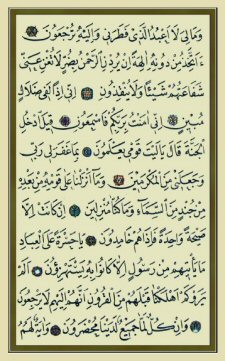 وَمَالِيَ لَا اَعْبُدُ الَّذ۪ي فَطَرَن۪ي وَاِلَيْهِ تُرْجَعُونَ
ءَاَتَّخِذُ مِنْ دُونِه۪ٓ اٰلِهَةً اِنْ يُرِدْنِ الرَّحْمٰنُ بِضُرٍّ لَا تُغْنِ عَنّ۪ي
شَفَاعَتُهُمْ شَيْـًٔا وَلَا يُنْقِذُونِ اِنّ۪ٓي اِذًا لَف۪ي ضَلَالٍ
مُب۪ينٍ اِنّ۪ٓي اٰمَنْتُ بِرَبِّكُمْ فَاسْمَعُونِ ق۪يلَ ادْخُلِ
الْجَنَّةَ قَالَ يَا لَيْتَ قَوْم۪ي يَعْلَمُونَ بِمَا غَفَرَ ل۪ي رَبّ۪ي
وَجَعَلَن۪ي مِنَ الْمُكْرَم۪ينَ وَمَٓا اَنْزَلْنَا عَلٰى قَوْمِه۪ مِنْ بَعْدِه۪
مِنْ جُنْدٍ مِنَ السَّمَٓاءِ وَمَا كُنَّا مُنْزِل۪ينَ اِنْ كَانَتْ اِلَّا
صَيْحَةً وَاحِدَةً فَاِذَا هُمْ خَامِدُونَ يَا حَسْرَةً عَلَى الْعِبَادِ
مَا يَأْت۪يهِمْ مِنْ رَسُولٍ اِلَّا كَانُوا بِه۪ يَسْتَهْزِؤُ۫نَ اَلَمْ
يَرَوْا كَمْ اَهْلَكْنَا قَبْلَهُمْ مِنَ الْقُرُونِ اَنَّهُمْ اِلَيْهِمْ لَا يَرْجِعُونَ
وَاِنْ كُلٌّ لَمَّا جَم۪يعٌ لَدَيْنَا مُحْضَرُونَ وَاٰيَةٌ لَهُمُ